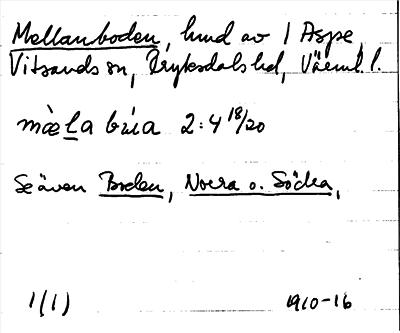 Mellanboden, hmd av 1 Aspe,
Vitsands sn, Fryksdals hd, Värml. l.
mὲḷa búa 2:4 18/20
Se även Boden, Norra o. Södra,
1(1) 1910-16